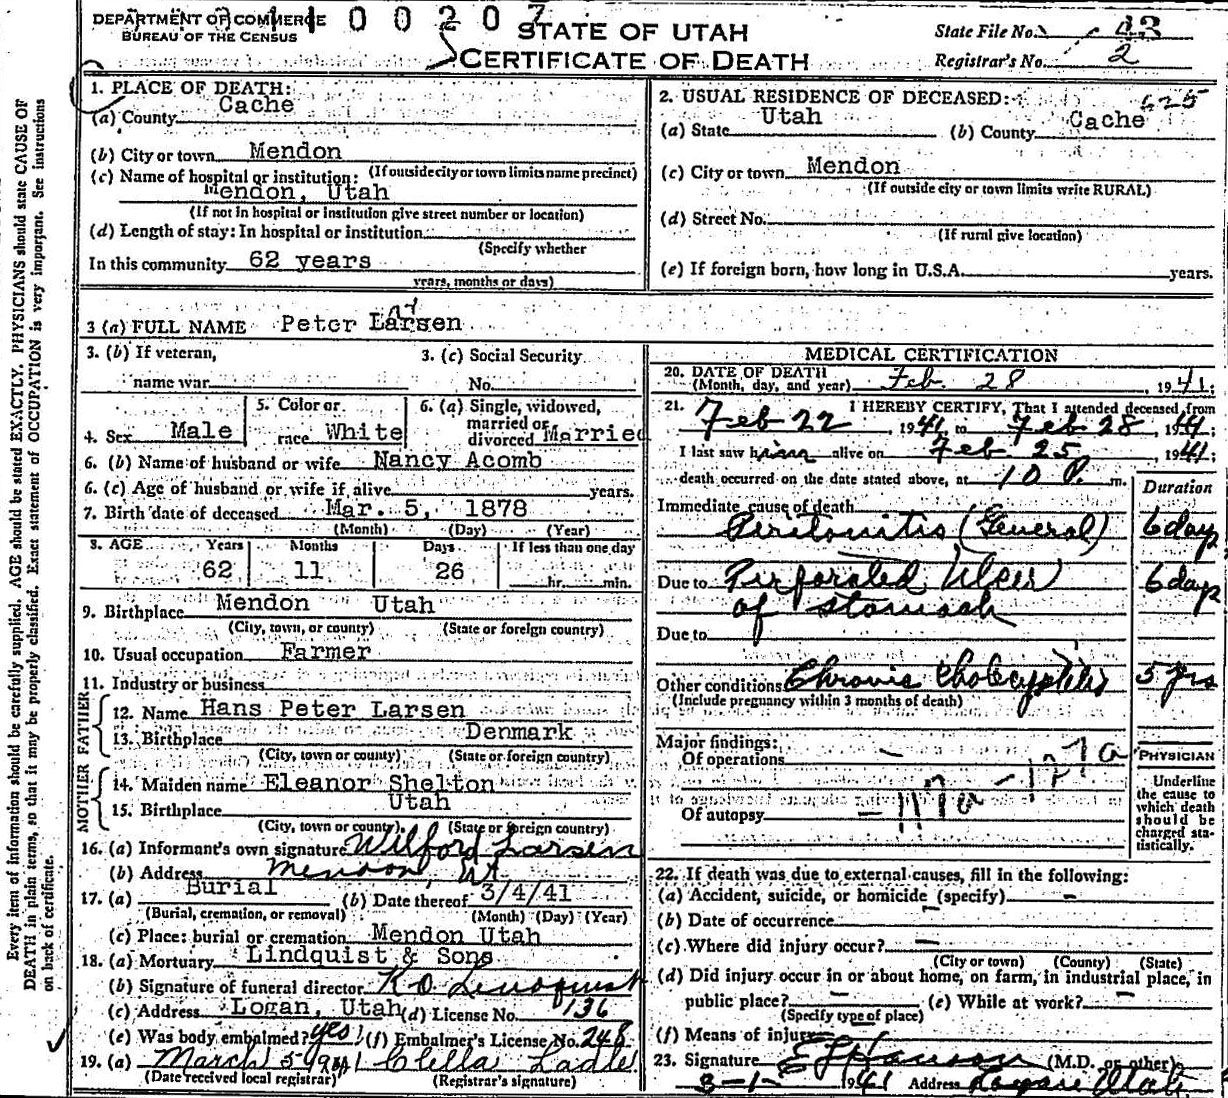 DEPARTMENT OF COMMERCE
BUREAU OF THE CENSUS
00207
STATE OF UTAH
CERTIFICATE OF DEATH
State File No. 43
Registrar's No. 2
Every item of information should be carefully supplied. AGE should be stated EXACTLY. PHYSICIANS should state CAUSE OF
DEATH in plain terms, so that it may be properly classified. Exact statement of OCCUPATION is very important. See instructions
on back of certificate.
1. PLACE OF DEATH:
(a) County Cache
(b) City or town Mendon
(If outside city or town limits name precinct)
(c) Name of hospital or institution:
Mendon, Utah
(If not in hospital or institution give street number or location)
(d) Length of stay: In hospital or institution
(Specify whether
In this community 62 years
years, months or days)
2. USUAL RESIDENCE OF DECEASED: 625
(a) State Utah (b) County Cache
(c) City or town Mendon
(If outside city or town limits write RURAL)
(d) Street No.
(If rural give location)
(e) If foreign born, how long in U.S.A. years.
3 (a) FULL NAME Peter Larsen
3. (b) If veteran,
name war
3. (c) Social Security
No.
4. Sex Male
5. Color or
race White
6. (a) Single, widowed,
married or
divorced Married
6. (b) Name of husband or wife Nancy Acomb
6. (c) Age of husband or wife if alive years.
7. Birth date of deceased Mar. 5, 1878
(Month) (Day) (Year)
8. AGE Years Months Days If less than one day
62 11 26 hr. min.
9. Birthplace Mendon Utah
(City, town, or county) (State or foreign country)
10. Usual occupation Farmer
11. Industry or business
FATHER
12. Name Hans Peter Larsen
13. Birthplace Denmark
(City, town or county) (State or foreign country)
MOTHER
14. Maiden name Eleanor Shelton
15. Birthplace Utah
(City, town or county) (State or foreign country)
16. (a) Informant's own signature Wilford Larsen
(b) Address Mendon, Ut
17. (a) Burial (b) Date thereof 3/4/41
(Burial, cremation, or removal) (Month) (Day) (Year)
(c) Place: burial or cremation Mendon Utah
18. (a) Mortuary Lindquist & Sons
(b) Signature of funeral director K O Lindquist
(c) Address Logan, Utah (d) License No. 136
(e) Was body embalmed? yes (f) Embalmer's License No. 248
19. (a) March 5-1941 Clella Ladle
(Date received local registrar) (Registrar's signature)
MEDICAL CERTIFICATION
20. DATE OF DEATH
(Month, day, and year) Feb. 28, 1941;
21. I HEREBY CERTIFY, That I attended deceased from
Feb 22, 1941 to Feb 28, 1941;
I last saw him alive on Feb 25, 1941;
death occurred on the date stated above, at 10 P. m.
Duration
Immediate cause of death
Peritonitis (General) 6 days
Due to Perforated Ulcer 6 days
of stomach
Due to
Other conditions Chronic Cholecystitis 5 yrs
(Include pregnancy within 3 months of death)
Major findings:
Of operations - 127a
Of autopsy - 117a
PHYSICIAN
Underline
the cause to
which death
should be
charged sta-
tistically.
22. If death was due to external causes, fill in the following:
(a) Accident, suicide, or homicide (specify) -
(b) Date of occurrence -
(c) Where did injury occur? -
(City or town) (County) (State)
(d) Did injury occur in or about home, on farm, in industrial place, in
public place? - (e) While at work? -
(Specify type of place)
(f) Means of injury -
23. Signature E J Hanson (M.D. or other)
3-1- 1941 Address Logan Utah